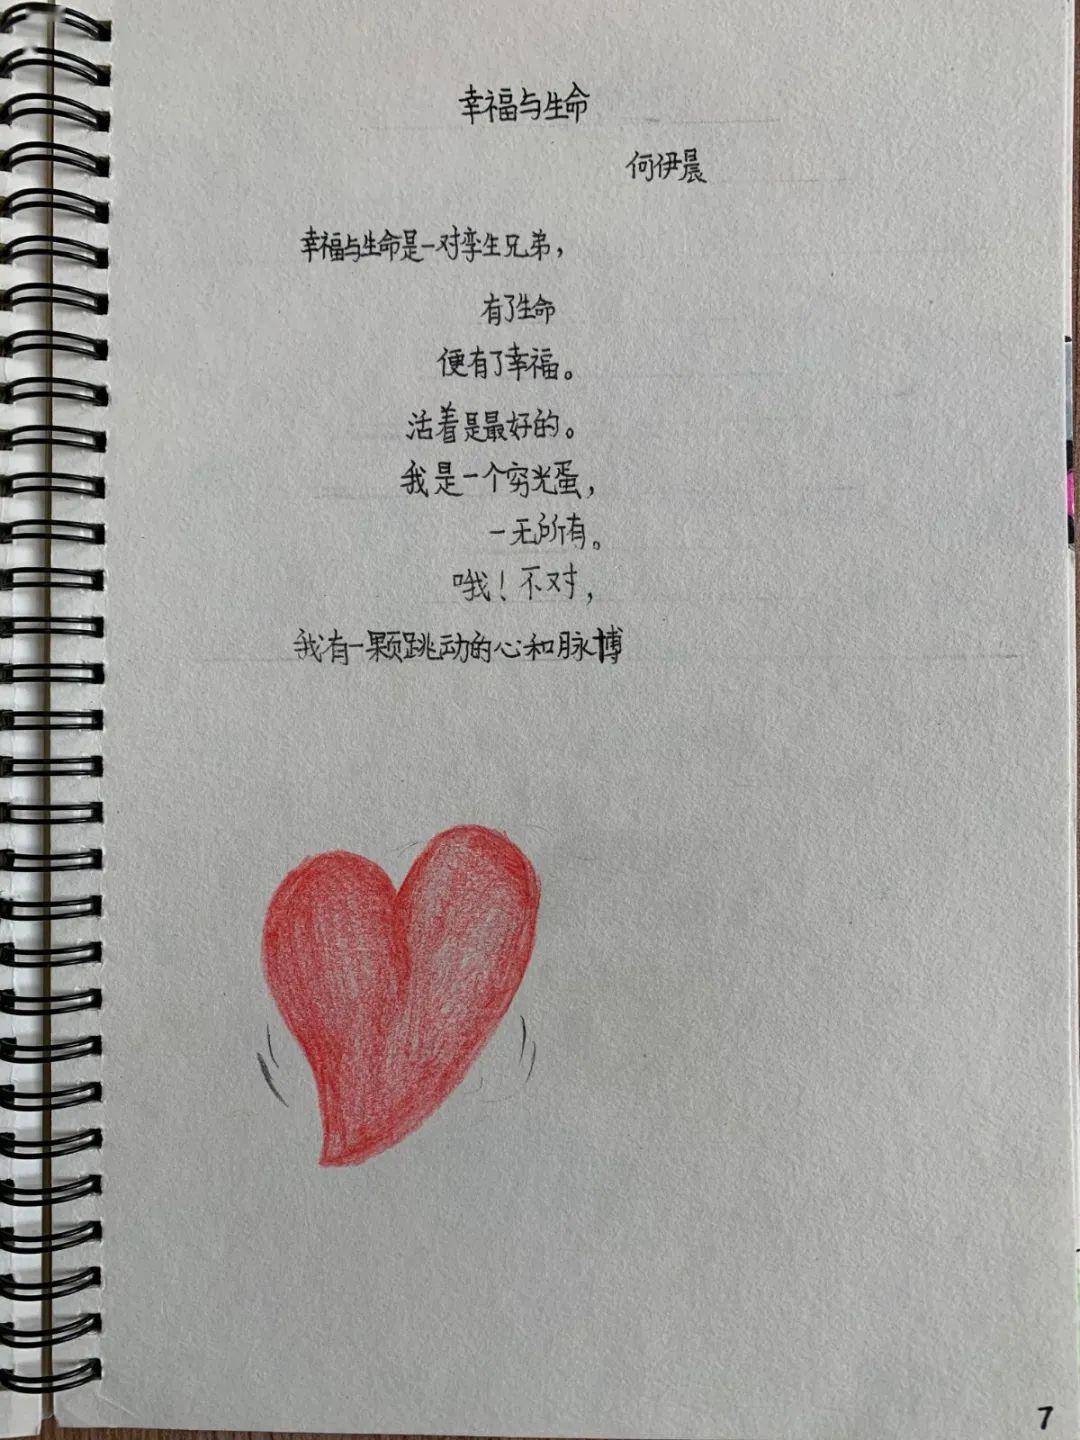 幸福与生命
何伊晨
幸福与生命是一对孪生兄弟，
有了生命
便有了幸福。
活着是最好的。
我是一个穷光蛋，
一无所有。
哦！不对，
我有一颗跳动的心和脉博
7